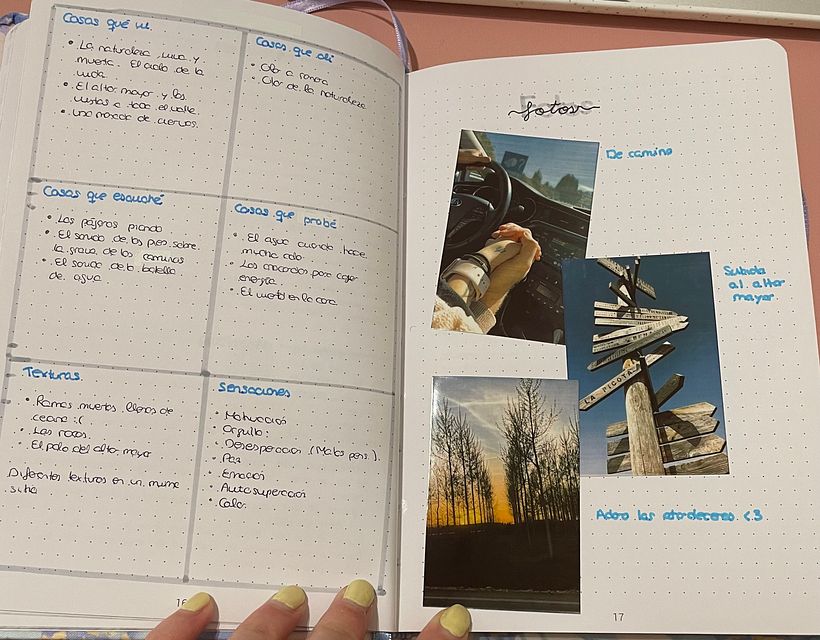 Cosas qué vi.
• La naturaleza viva y
muerta. El ciclo de la
vida
• El altor mayor y las
vistas a todo el valle
• una de cuervos.
Cosas que olí
• Olor a
• Olor de la naturaleza
Cosas que escuché
• Los pájaros piando
• El sonido de los pies sobre
la grava de los caminos
• El sonido de la botella
de agua.
Cosas que probé
• El agua cuando hace
mucho calor
• Los para coger
energía.
• El en la cara
Texturas.
• Ramas muertas llenas de
:(
• Las rocas.
• El palo del altor mayor
Diferentes texturas en un mismo
sitio
Sensaciones
• Motivación
• Orgullo.
• Desesperación (Malos pens.).
• Paz
• Emoción
• Autosuperación
• Calor.
16
Fotos
fotos
De camino
Subida
al altor
mayor
LA PICOTA
Adoro las atardeceres <3
17